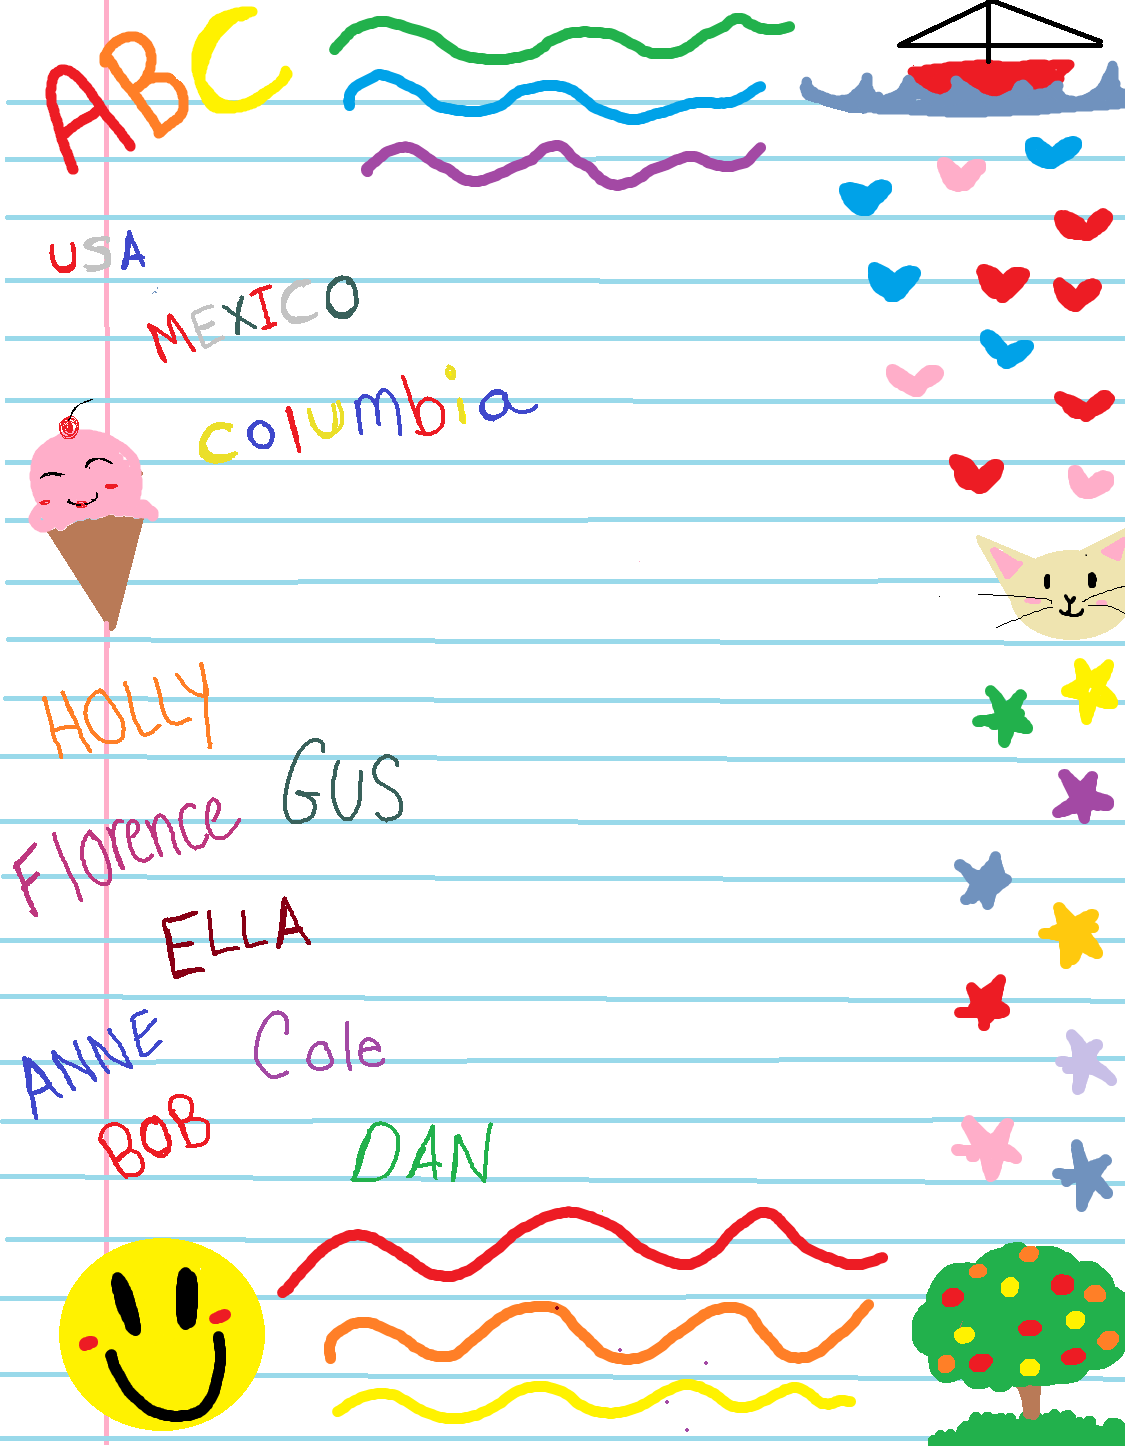 ABC
USA
MEXICO
columbia
HOLLY
GUS
Florence
ELLA
ANNE
Cole
BOB
DAN